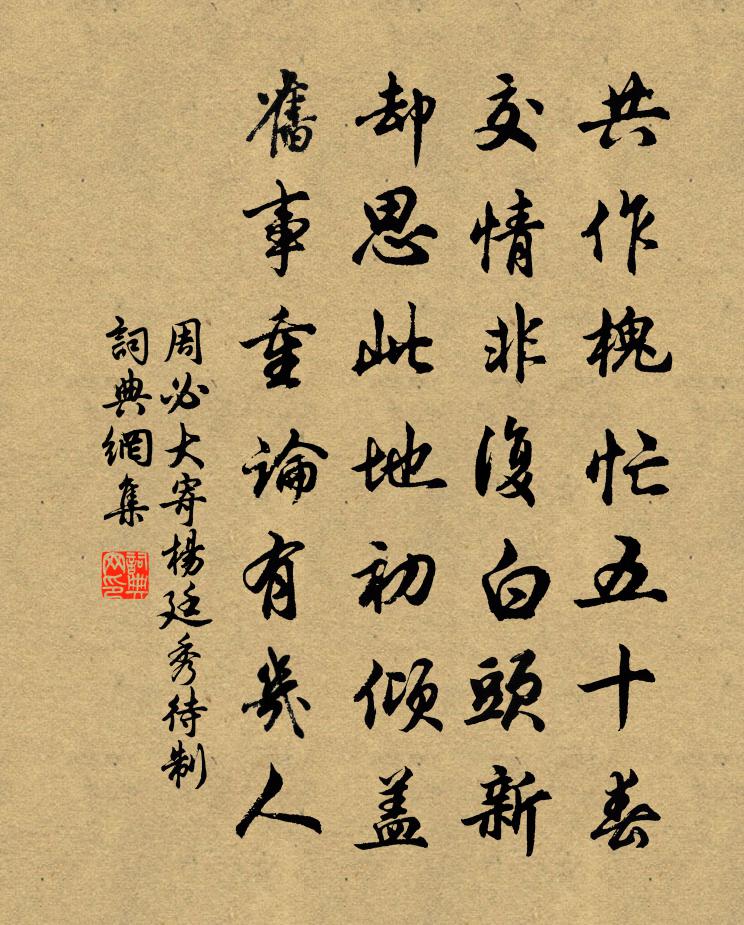 共作槐忙五十春
交情非復白頭新
却思此地初傾蓋
舊事重論有幾人
周必大寄楊廷秀待制
詞典網集
詞典網印